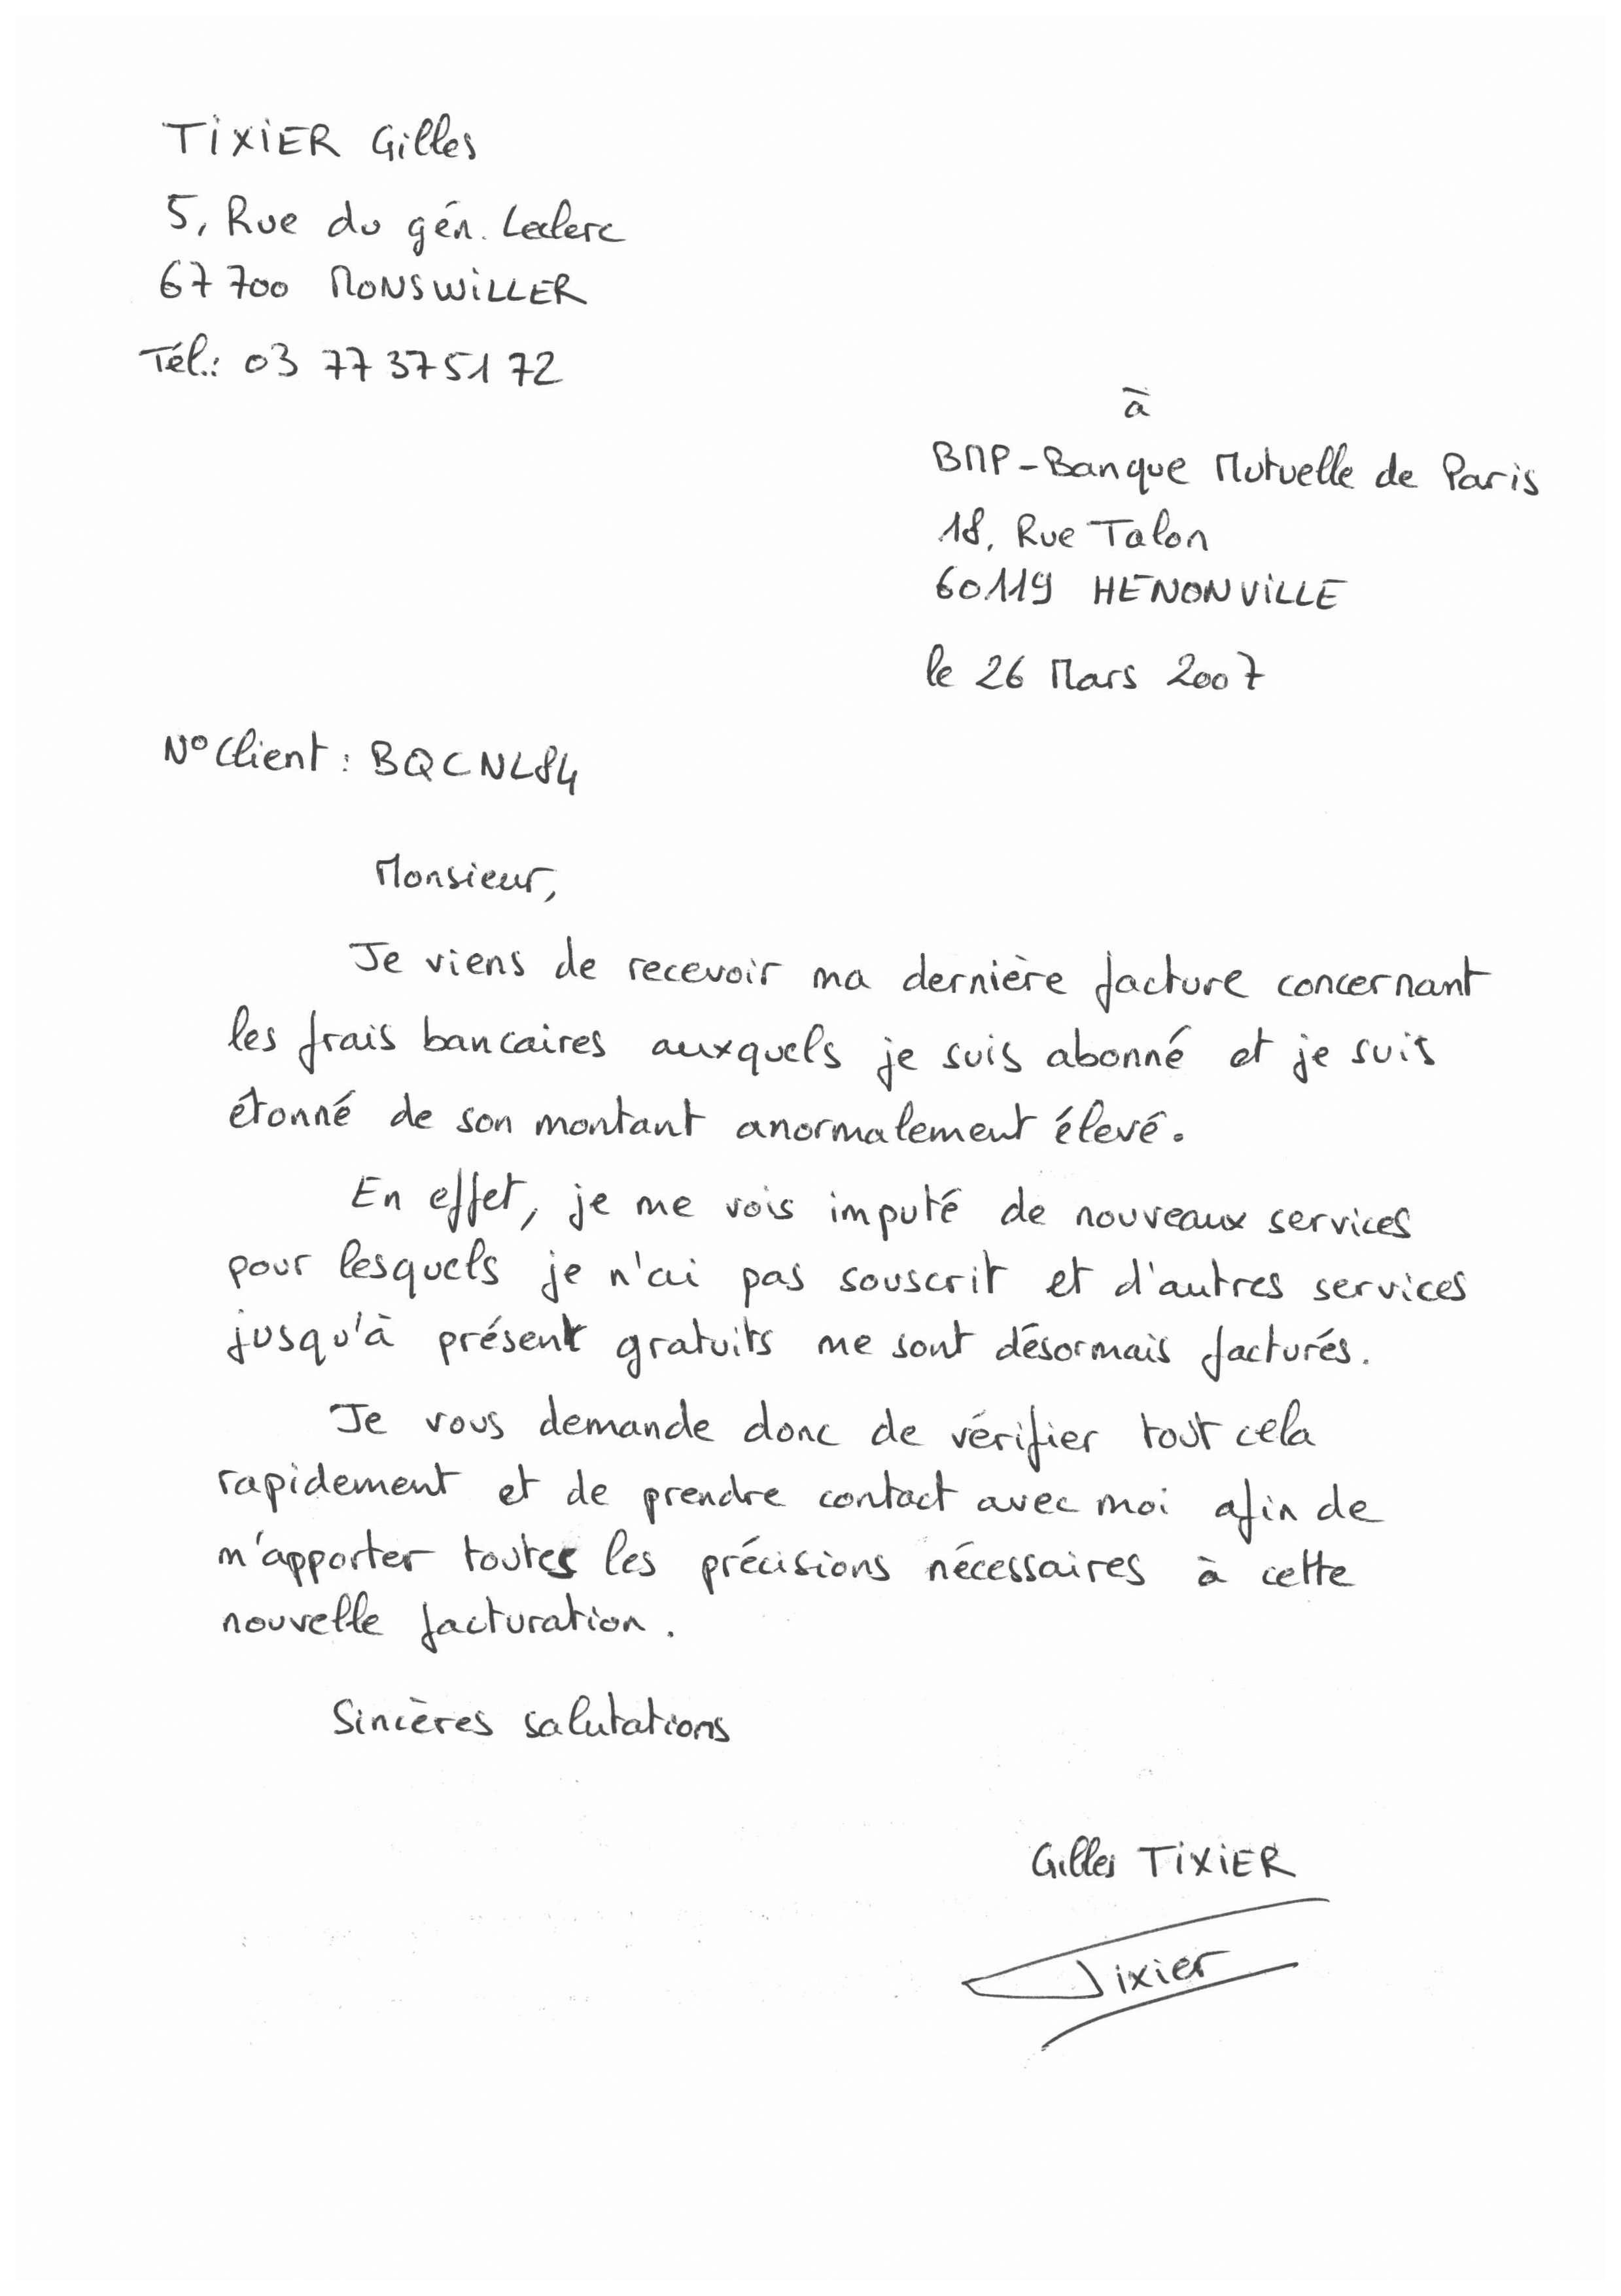 TIXIER Gilles
5, Rue du gén. Leclerc
67 700 MONSWILLER
Tél.: 03 77 37 51 72
à
BMP-Banque Mutuelle de Paris
18, Rue Talon
60119 HENONVILLE
le 26 Mars 2007
N° Client : BQCNL84
Monsieur,
Je viens de recevoir ma dernière facture concernant
les frais bancaires auxquels je suis abonné et je suis
étonné de son montant anormalement élevé.
En effet, je me vois imputé de nouveaux services
pour lesquels je n'ai pas souscrit et d'autres services
jusqu'à présent gratuits me sont désormais facturés.
Je vous demande donc de vérifier tout cela
rapidement et de prendre contact avec moi afin de
m'apporter toutes les précisions nécessaires à cette
nouvelle facturation.
Sincères salutations
Gilles TIXIER
Tixier